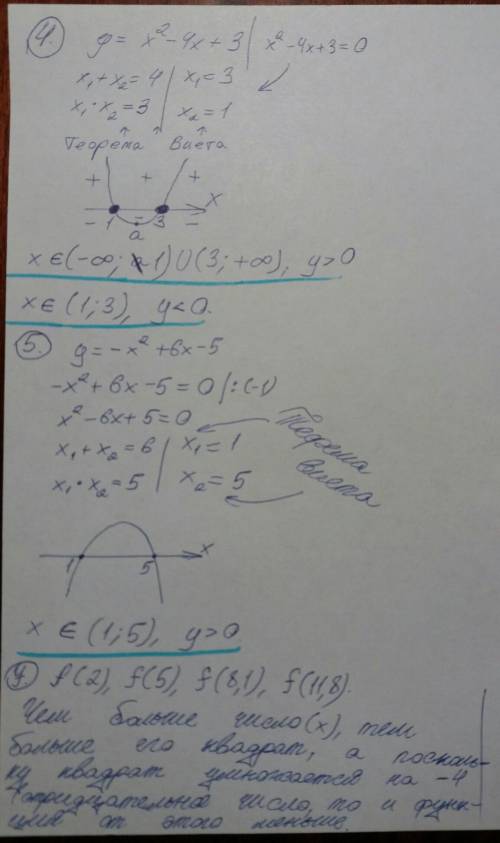 4. y = x² - 4x + 3 | x² - 4x + 3 = 0
x₁ + x₂ = 4 | x₁ = 3
x₁ · x₂ = 3 | x₂ = 1
Теорема Виета
+ + + x
- 1 - 3 -
a
x ∈ (-∞; 1) ∪ (3; +∞), y > 0
x ∈ (1; 3), y < 0.
5. y = -x² + 6x - 5
-x² + 6x - 5 = 0 | : (-1)
x² - 6x + 5 = 0
x₁ + x₂ = 6 | x₁ = 1
x₁ · x₂ = 5 | x₂ = 5
Теорема
Виета
x
1 5
x ∈ (1; 5), y > 0
7 f(2), f(5), f(8,1), f(11,8).
Чем больше число (x), тем
больше его квадрат, а посколь-
ку квадрат умножается на -4
(отридцательное число, то и функ-
ция от этого меньше.